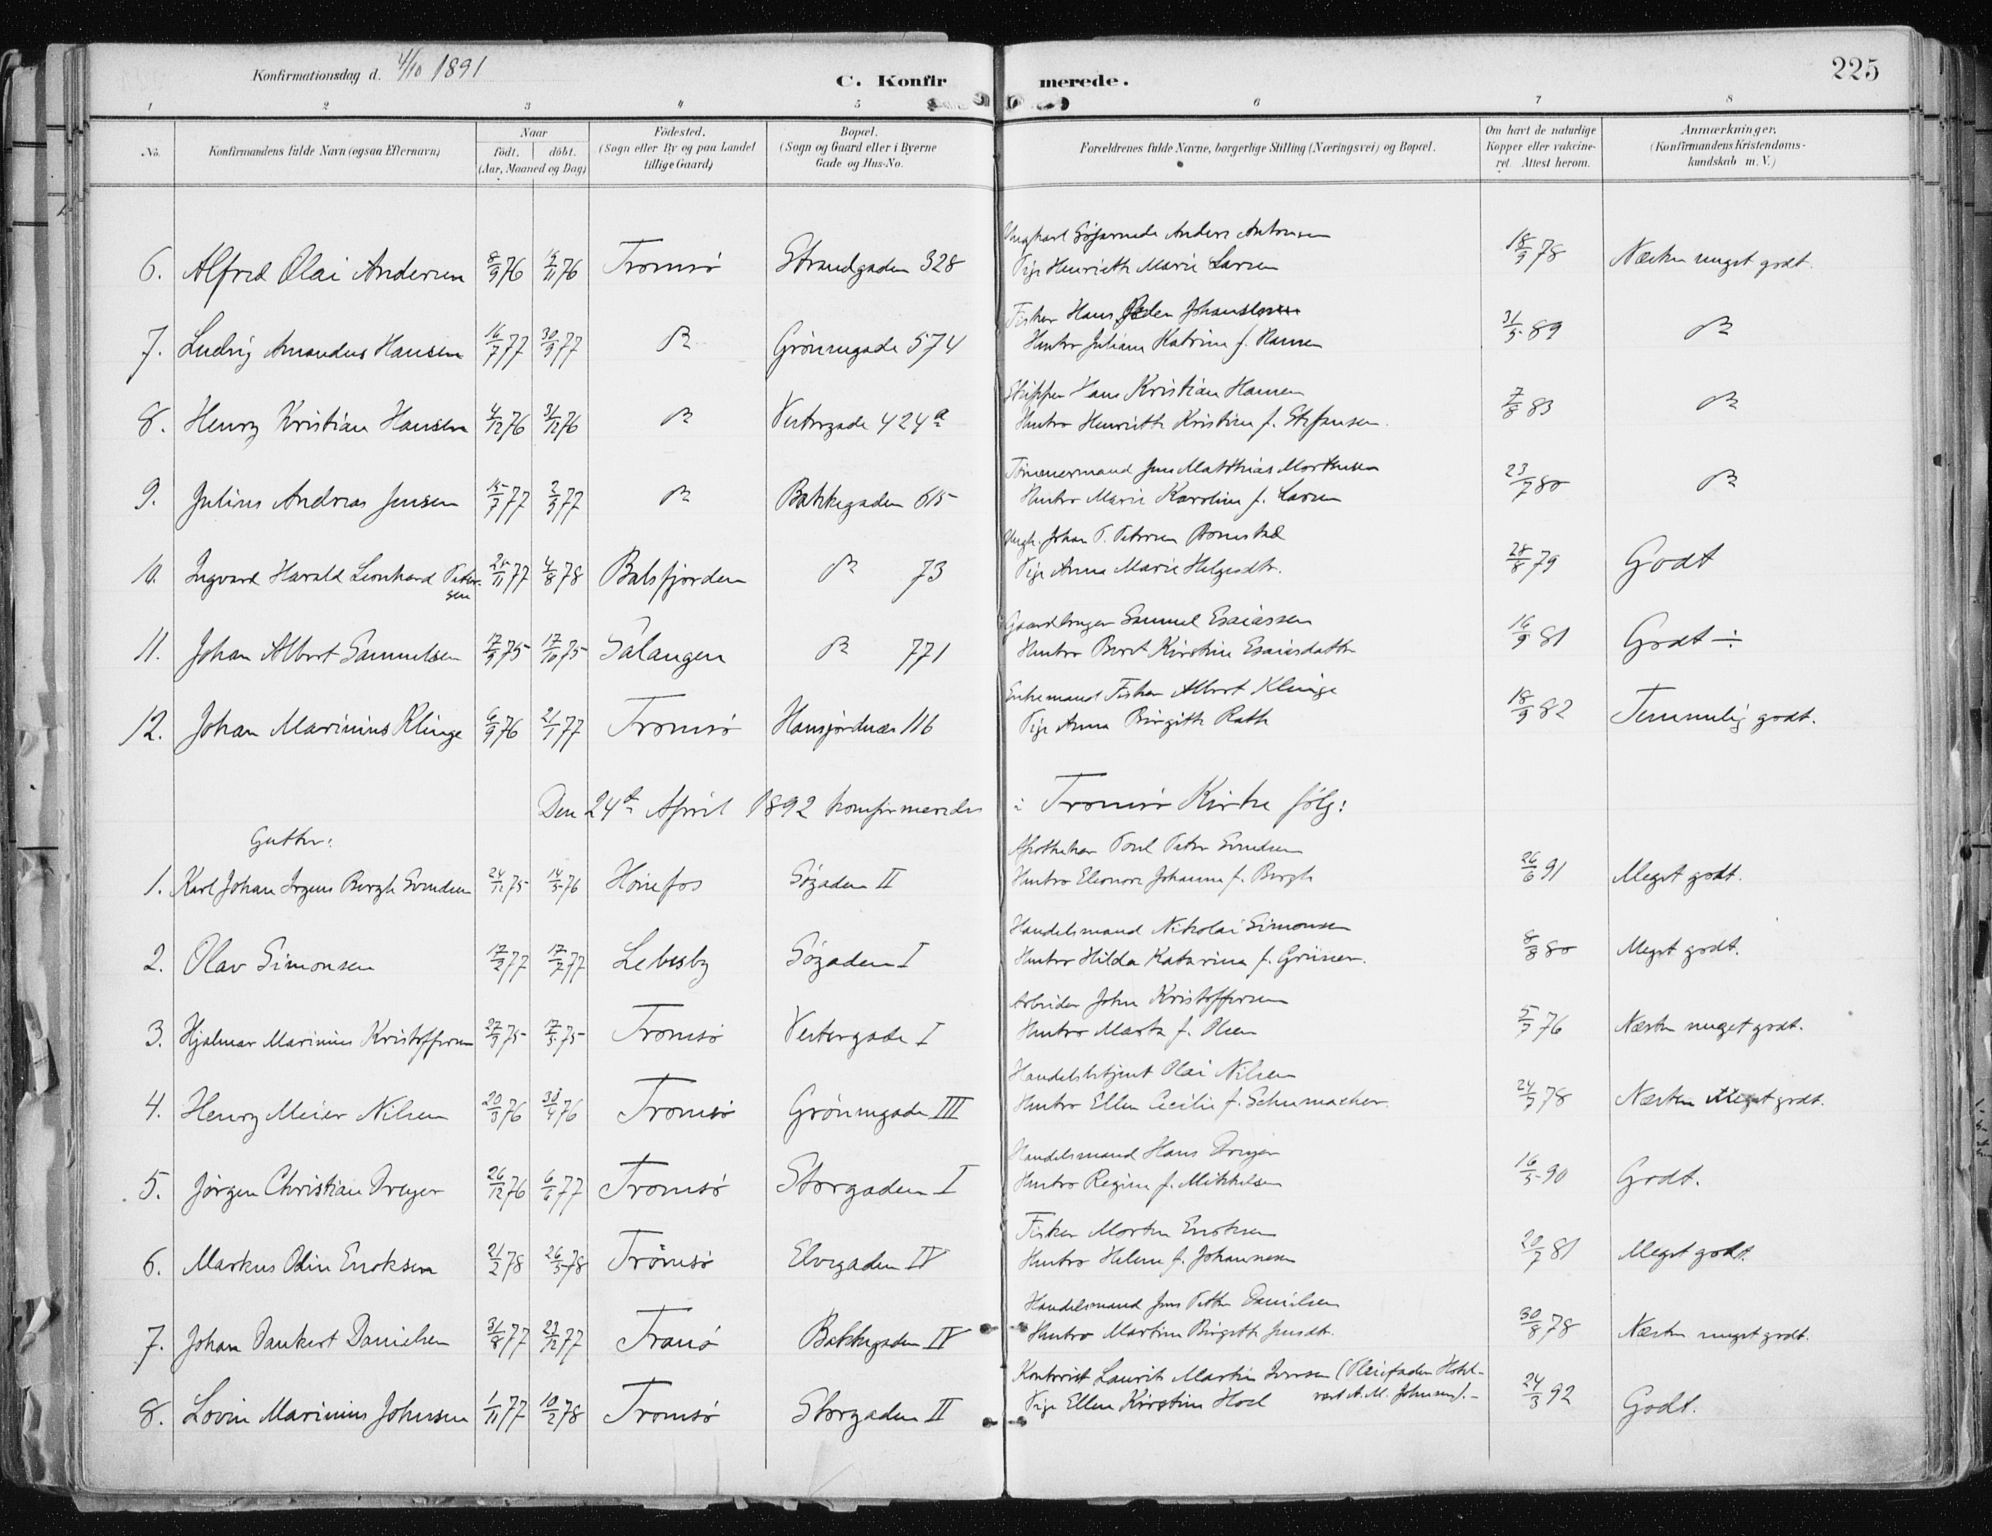 Konfirmationsdag d. 4/10 1891
C. Konfirmerede.
225
1 2 3 4 5 6 7 8
No.
Konfirmandens fulde Navn (ogsaa Efternavn)
Naar
født. døbt.
(Aar, Maaned og Dag)
Fødested.
(Sogn eller By og paa Landet
tillige Gaard)
Bopæl.
(Sogn og Gaard eller i Byerne
Gade og Hus-No.
Forældrenes fulde Navne, borgerlige Stilling (Næringsvei) og Bopæl.
Om havt de naturlige
Kopper eller vakcine-
ret. Attest herom.
Anmærkninger.
(Konfirmandens Kristendoms-
kundskab m. V.)
Ungkarl Søfarende Anders Antonsen
6. Alfred Olai Andersen 8/9 76 76 Tromsø Strandgaden 328 Pige Henriette Marie Larsen 18/9 78 Næsten meget godt.
Fisker Hans Johan
7. Ludvig Amandus Hansen 16/7 77 30/9 77 Do Grønnegade 574 Hustru Juliane Katrine f. Hansen 31/5 89 Do
Skipper Hans Kristian Hansen
8. Henry Kristian Hansen 4/12 76 31/12 76 Do Vestergade 424 a Hustru Henriette Kristine f. Stefansen. 7/8 83 Do
Tømmermand Jens Matthias Mortensen
9. Julius Andreas Jensen 15/7 77 2/9 77 Do Bakkegaden 615 Hustru Marie Karoline f. Larsen 23/7 80 Do
Ungk. Johan P. Petersen
10. Ingvard Harald Leonhard Peter-
sen 77 4/8 78 Balsfjorden Do 73 Pige Anna Marie Helgesdtr. 28/8 79 Godt
Gaardbruger Samuel Esaiassen
11. Johan Albert Samuelsen 17/9 75 17/10 75 Salangen Do 771 Hustru Beret Kirstine Esaiasdatter 16/9 81 Godt ÷
Enkemand Fisker Albert Klinge
12. Johan Marinius Klinge 6/9 76 21/1 77 Tromsø Hansjordnæs 116 Pige Anna Birgitte Rath 18/9 82 Temmelig godt.
Den 24de April 1892 konfirmeredes i Tromsø Kirke følg:
Gutter:
Apotheker Poul Peter Svendsen
1. Karl Johan Irgens Bergh Svendsen 24/12 75 14/5 76 Hønefos Søgaden II Hustru Eleonore Johanne f. Bergh 26/6 91 Meget godt.
Handelsmand Nikolai Simonsen
2. Olav Simonsen 17/2 77 17/7 77 Lebesby Søgaden I Hustru Hilda Katarina f. Grüner. 8/8 80 Meget godt.
Arbeider John Kristoffersen
3. Hjalmar Marinius Kristoffersen 27/3 75 17/5 75 Tromsø Vestergade I Hustru Marta f. Olsen 5/7 76 Næsten meget godt.
Handelsbetjent Olai Nilsen
4. Henry Meier Nilsen 20/3 76 30/4 76 Tromsø Grønnegade III Hustru Ellen Cecilie f. Schumacher. 24/7 78 Næsten Meget godt.
Handelsmand Hans Dreyer
5. Jørgen Christian Dreyer 26/12 76 77 Tromsø Storgaden I Hustru Regine f. Mikkelsen 16/5 90 Godt.
Fisker Morten Enoksen
6. Markus Odin Enoksen 21/2 78 26/5 78 Tromsø Elvegaden IV Hustru Helene f. Johannesen 20/7 81 Meget godt.
Handelsmand Jens Petter Danielsen
7. Johan Dankert Danielsen 31/8 77 77 Tranø Bakkegaden IV Hustru Martine Birgitte Jensdtr. 30/8 78 Næsten meget godt.
Kontorist Laurits Martin Iversen (Pleiefaden Hotel-
8. Lovin Marinius Johnsen 1/11 77 10/2 78 Tromsø Storgaden II Pige Ellen Kirstine Hoel vært A. M. Johnsen).- 24/3 92 Godt.